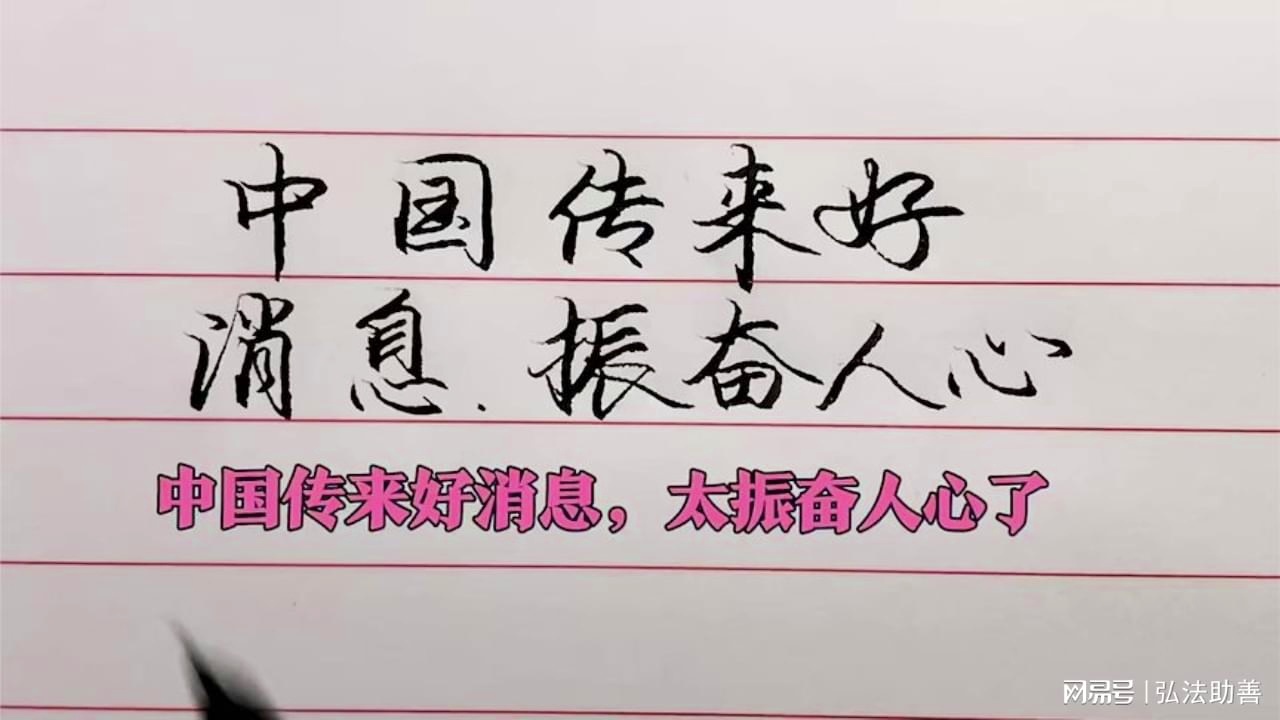 中国传来好
消息.振奋人心
中国传来好消息，太振奋人心了
网易号|弘法助善